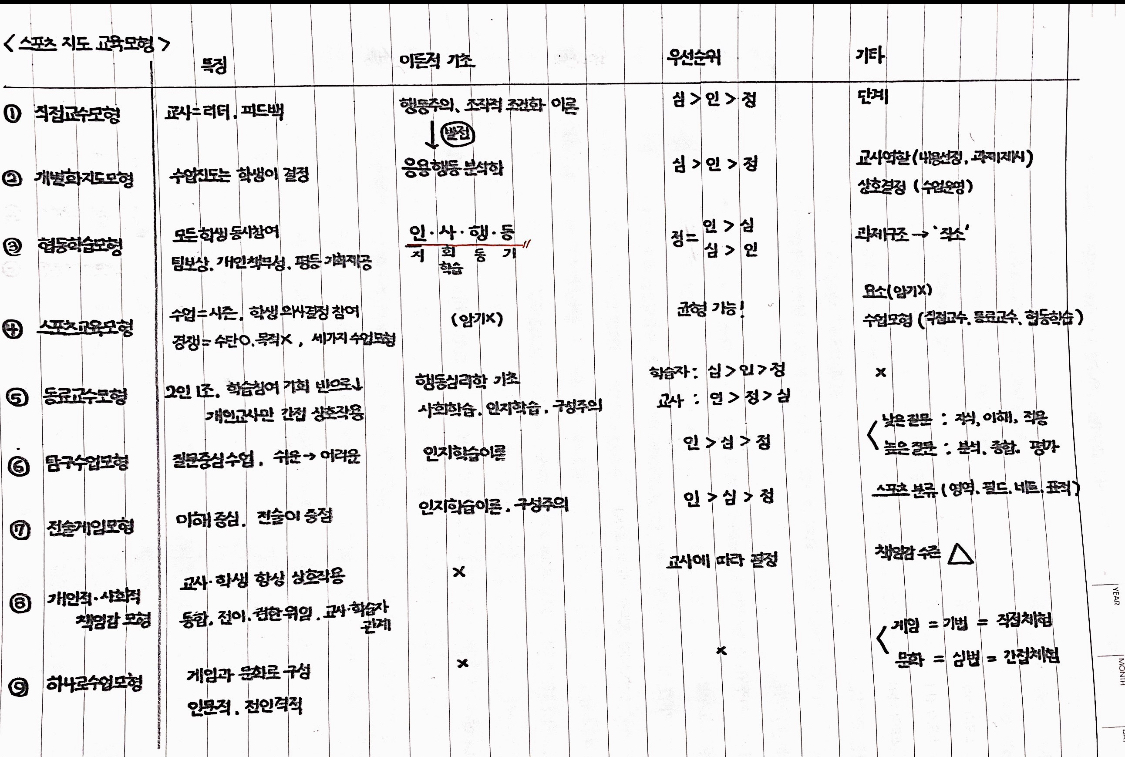 <스포츠 지도 교육모형>
특징 이론적 기초 우선순위 기타
① 직접교수모형 교사=리더, 피드백 행동주의, 조작적 조건화 이론 심>인>정 단계
↓ 발전
② 개별화지도모형 수업진도는 학생이 결정 응용행동 분석학 심>인>정 교사역할(내용선정, 과제제시)
상호결정 (수업운영)
③ 협동학습모형 모든학생 동시참여 인·사·행·동 정= 인>심 과제구조→'직소'
팀보상, 개인책무성, 평등 기회제공 지 회 동 기 심>인
학습
④ 스포츠교육모형 수업=시즌, 학생 의사결정 참여 (암기X) 균형 가능! 요소(암기X)
경쟁=수단O, 목적X, 세가지 수업모형 수업모형 (직접교수, 동료교수, 협동학습)
⑤ 동료교수모형 2인 1조, 학습참여 기회 반으로↓ 행동심리학 기초 학습자: 심>인>정 X
개인교사만 간접 상호작용 사회학습, 인지학습, 구성주의 교사: 인>정>심
⑥ 탐구수업모형 질문중심수업, 쉬운→어려운 인지학습이론 인>심>정 낮은질문: 지식, 이해, 적용
높은질문: 분석, 종합, 평가
⑦ 전술게임모형 이해중심, 전술이 중점 인지학습이론, 구성주의 인>심>정 스포츠 분류 (영역, 필드, 네트, 표적)
⑧ 개인적·사회적 책임감 모형 교사·학생 항상 상호작용 X 교사에 따라 결정 책임감 수준 △
통합, 전이, 권한위임, 교사·학습자 관계
⑨ 하나로수업모형 게임과 문화로 구성 X X 게임 = 기법 = 직접체험
인문적, 전인격적 문화 = 심법 = 간접체험
YEAR
MONTH